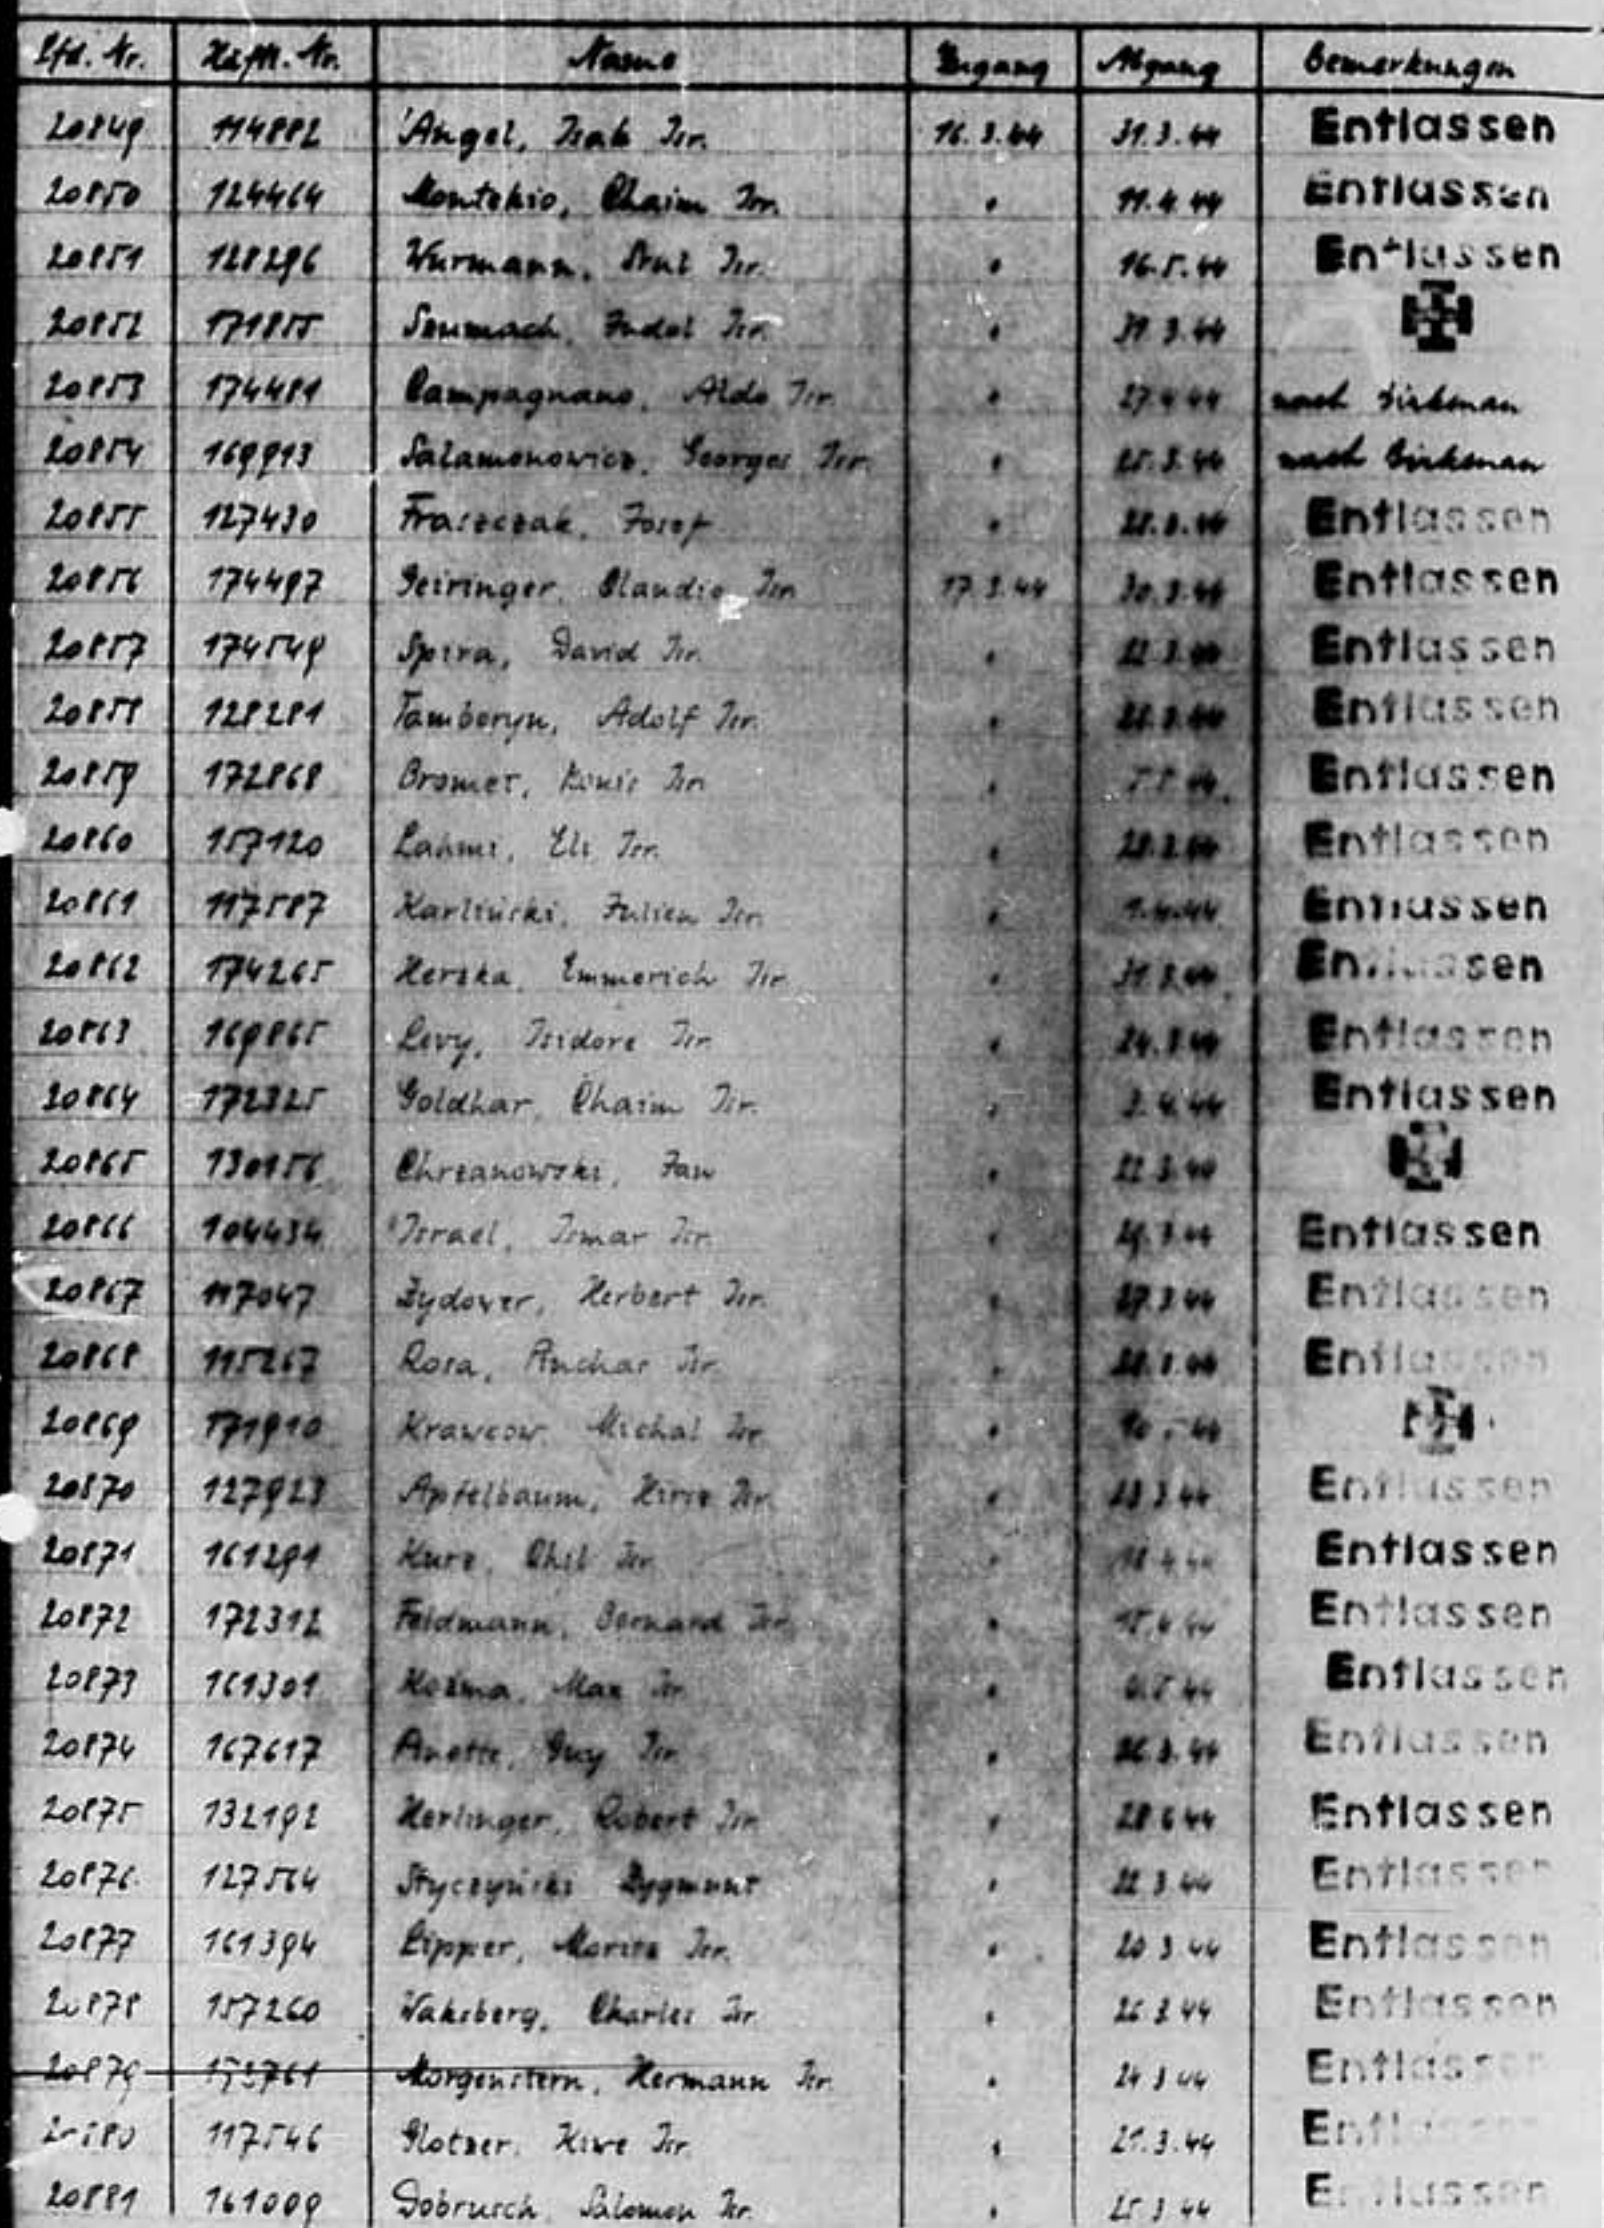 Lfd. Nr. Häftl. Nr. Name Zugang Abgang Bemerkungen
20849 114882 Angel, Isak Isr. 16.3.44 31.3.44 Entlassen
20850 124464 Montekio, Chaim Isr. " 11.4.44 Entlassen
20851 128296 Wurmann, Isr. " 16.5.44 Entlassen
20852 171855 Szumach, Judel Isr. " 31.3.44
20853 174481 Campagnano, Aldo Isr. " 27.4.44 nach Birkenau
20854 169913 Salamonowicz, Georges Isr. " 25.3.44 nach Birkenau
20855 127430 Fraszczak, Josef " Entlassen
20856 174497 Geiringer, Claudio Isr. 17.3.44 30.3.44 Entlassen
20857 174549 Spira, David Isr. " 22.3.44 Entlassen
20858 128281 Tamboryn, Adolf Isr. " Entlassen
20859 172868 Bromet, Isr. " Entlassen
20860 157120 Lahmi, Eli Isr. " Entlassen
20861 117587 Karlinski, Julien Isr. " 1.4.44 Entlassen
20862 174265 Herzka, Emmerich Isr. " 31.3.44 Entlassen
20863 169865 Levy, Isidore Isr. " 24.3.44 Entlassen
20864 172325 Goldhar, Chaim Isr. " 3.4.44 Entlassen
20865 130156 Chrzanowski, Jan " 22.3.44
20866 104434 Israel, Ismar Isr. " 29.3.44 Entlassen
20867 117047 Zydower, Herbert Isr. " 27.3.44 Entlassen
20868 115267 Rosa, Isr. " Entlassen
20869 171910 Krawcow, Michal Isr. "
20870 127923 Apfelbaum, Isr. " 23.3.44 Entlassen
20871 161291 Kurz, Chil Isr. " 18.4.44 Entlassen
20872 172312 Feldmann, Bernard Isr. " Entlassen
20873 161301 Kozma, Max Isr. " Entlassen
20874 167617 Guy Isr. " 26.3.44 Entlassen
20875 132192 Herlinger, Robert Isr. " 28.6.44 Entlassen
20876 127564 Styczynski Zygmunt " 22.3.44 Entlassen
20877 161394 Lipper, Moritz Isr. " 20.3.44 Entlassen
20878 157260 Waksberg, Charles Isr. " 26.3.44 Entlassen
20879 172761 Morgenstern, Hermann Isr. " 24.3.44 Entlassen
20880 117546 Glotzer, Isr. " 21.3.44 Entlassen
20881 161009 Dobrusch, Salomon Isr. " 25.3.44 Entlassen